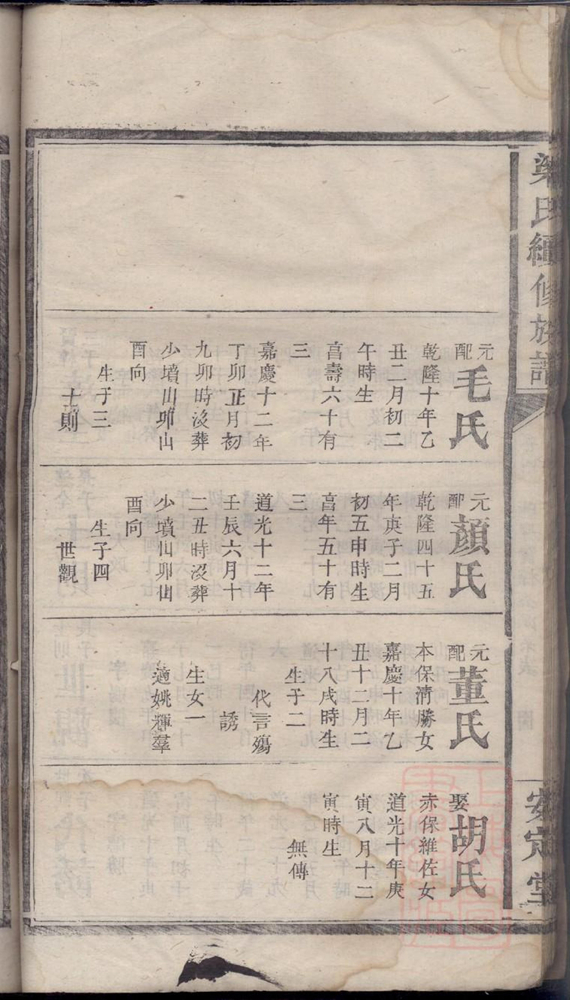 梁氏續修族譜
安定堂
元配毛氏
乾隆十年乙
丑二月初二
午時生
享壽六十有
三
嘉慶十二年
丁卯正月初
九卯時沒葬
少墳山卯山
酉向
生子三
士則
元配顏氏
乾隆四十五
年庚子二月
初五申時生
享年五十有
三
道光十二年
壬辰六月十
二丑時沒葬
少墳山卯山
酉向
生子四
世觀
元配董氏
本保清勝女
嘉慶十年乙
丑十二月二
十八戌時生
生子二
代言殤
誘
生女一
適姚輝羣
娶胡氏
赤保維佐女
道光十年庚
寅八月十二
寅時生
無傳